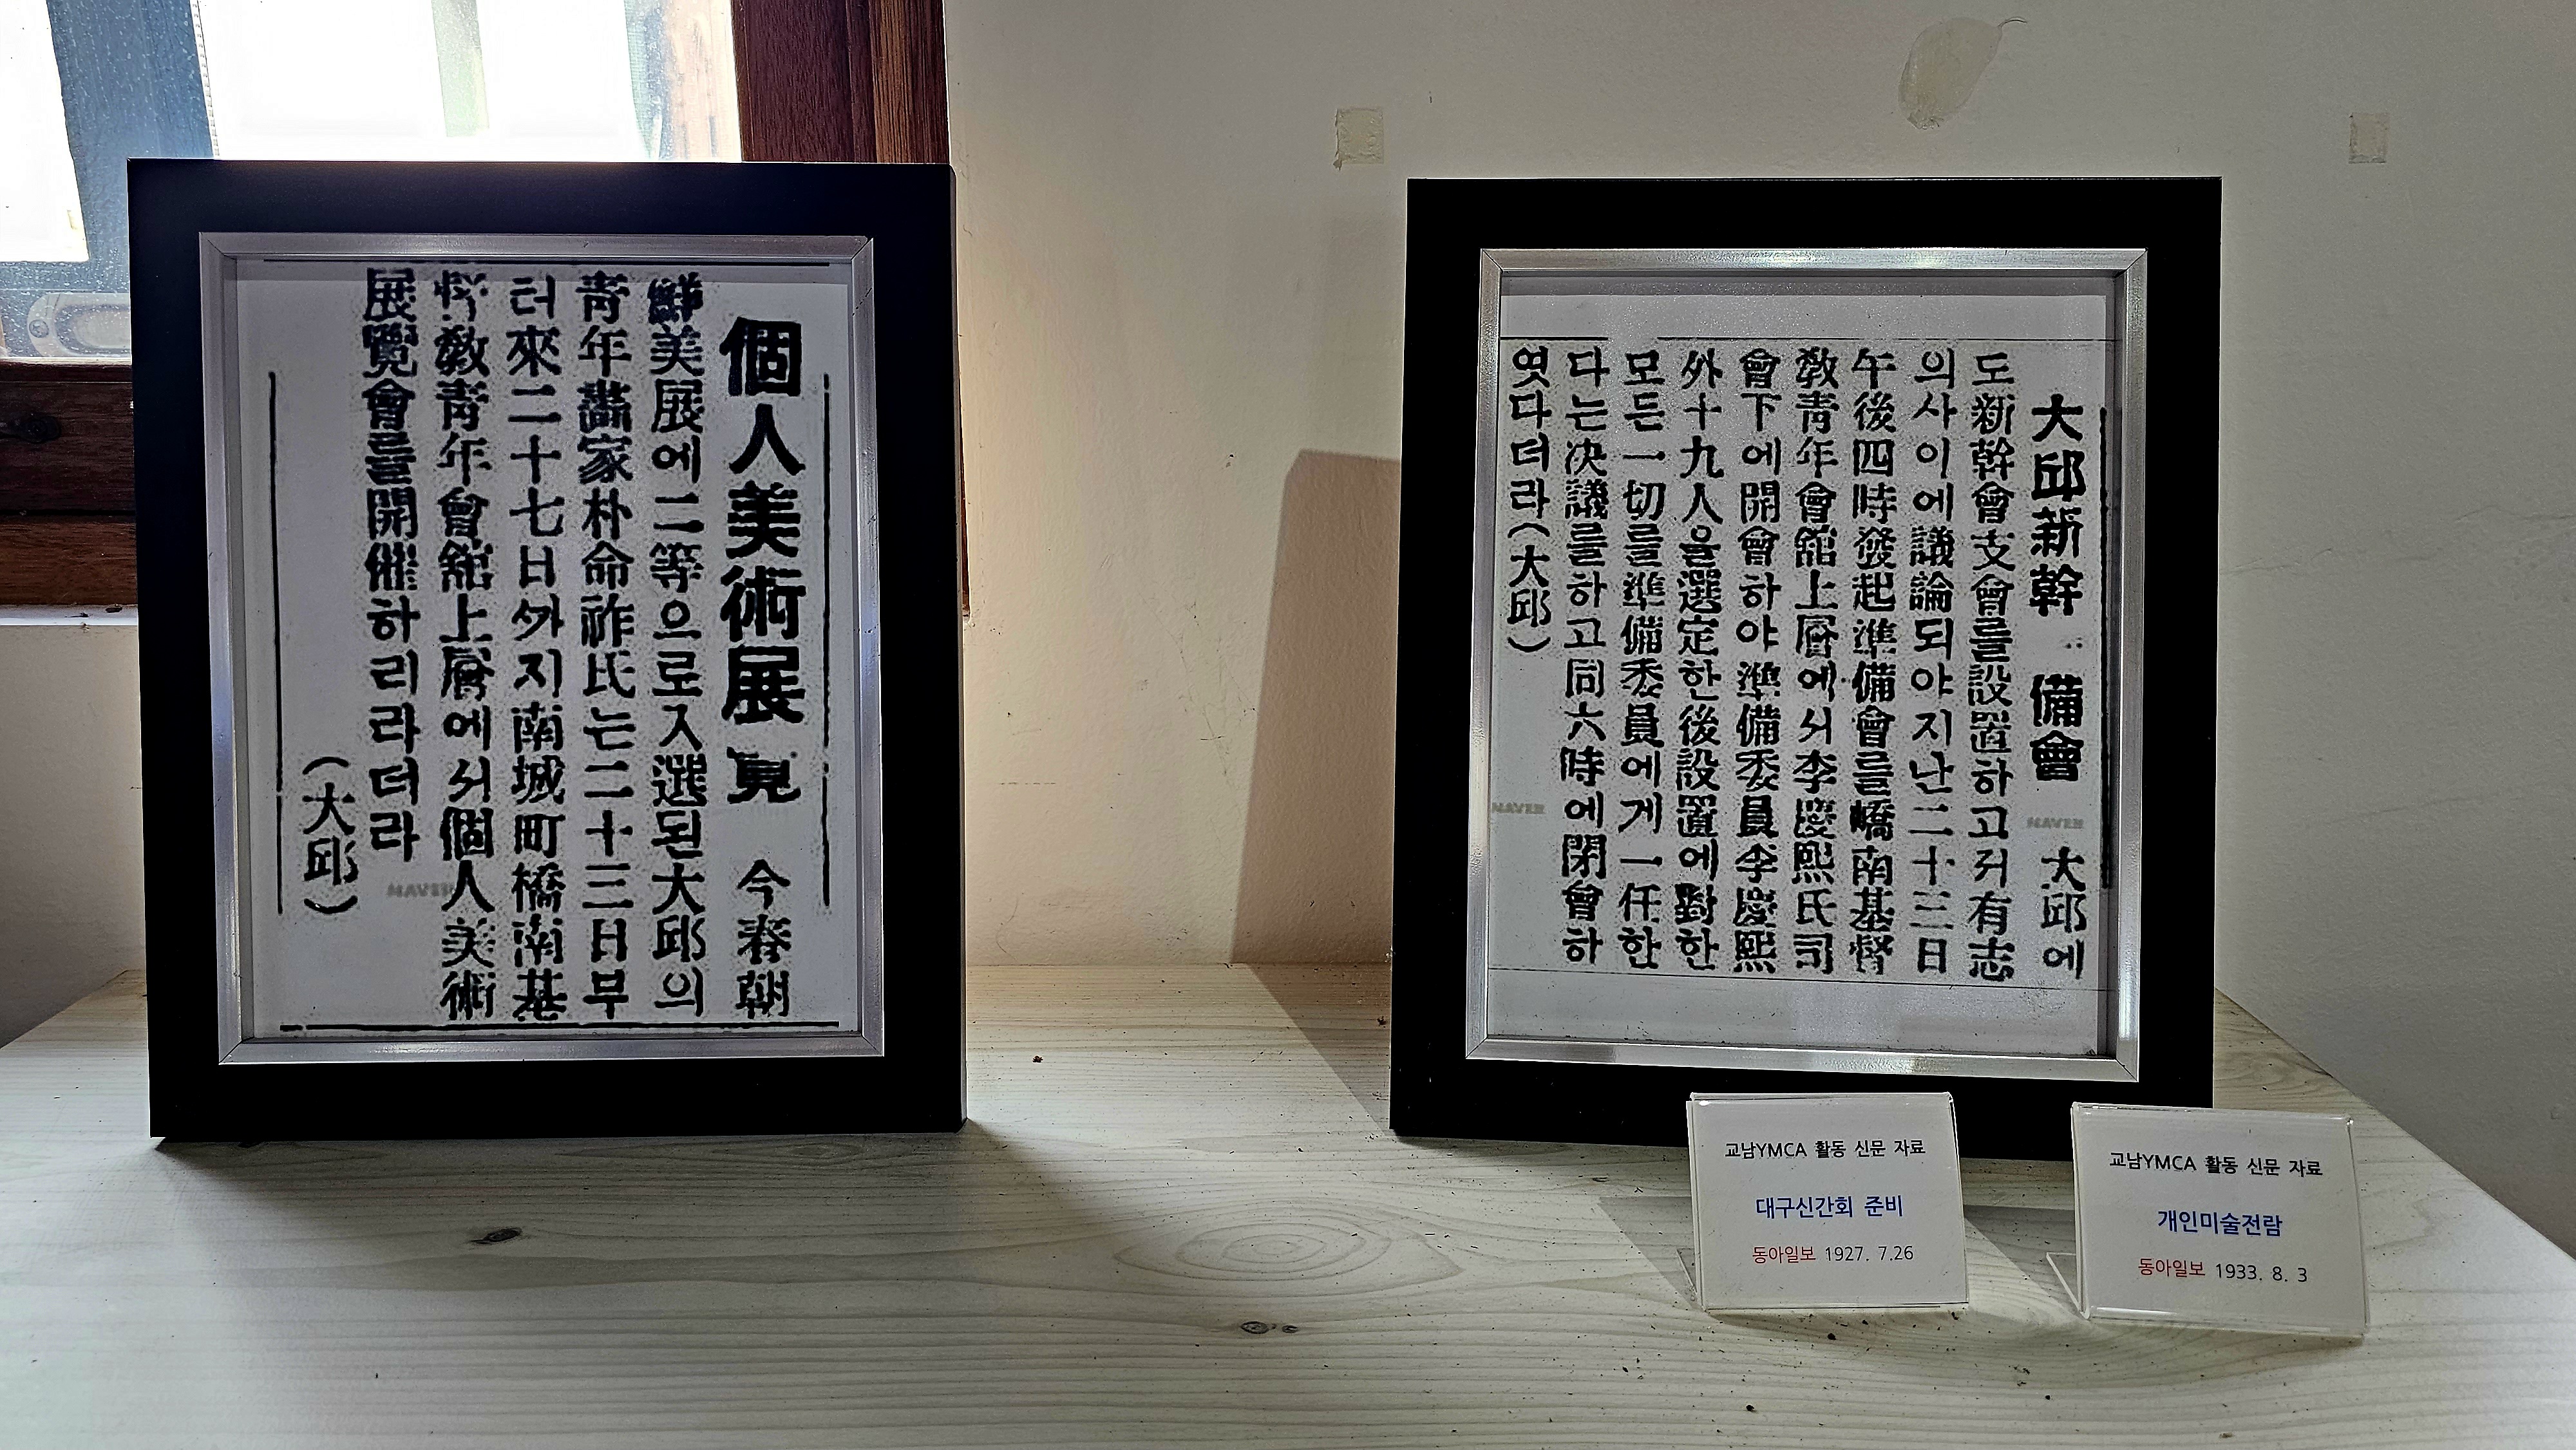 個人美術展覽 今春朝
鮮美展에二等으로入選된大邱의
靑年畵家朴命祚氏는二十三日부
터來二十七日外지南城町橋南基
督敎靑年會舘上層에서個人美術
展覽會를開催하리라더라
(大邱)
NAVER
大邱新幹 備會 大邱에
도新幹會支會를設置하고저有志
의사이에議論되야지난二十三日
午後四時發起準備會를嶠南基督
敎靑年會舘上層에서李慶熙氏司
會下에開會하야準備委員李慶熙
外十九人을選定한後設置에對한
모든一切를準備委員에게一任한
다는決議를하고同六時에閉會하
엿다더라(大邱)
NAVER
NAVER
교남YMCA 활동 신문 자료
대구신간회 준비
동아일보 1927. 7.26
교남YMCA 활동 신문 자료
개인미술전람
동아일보 1933. 8. 3